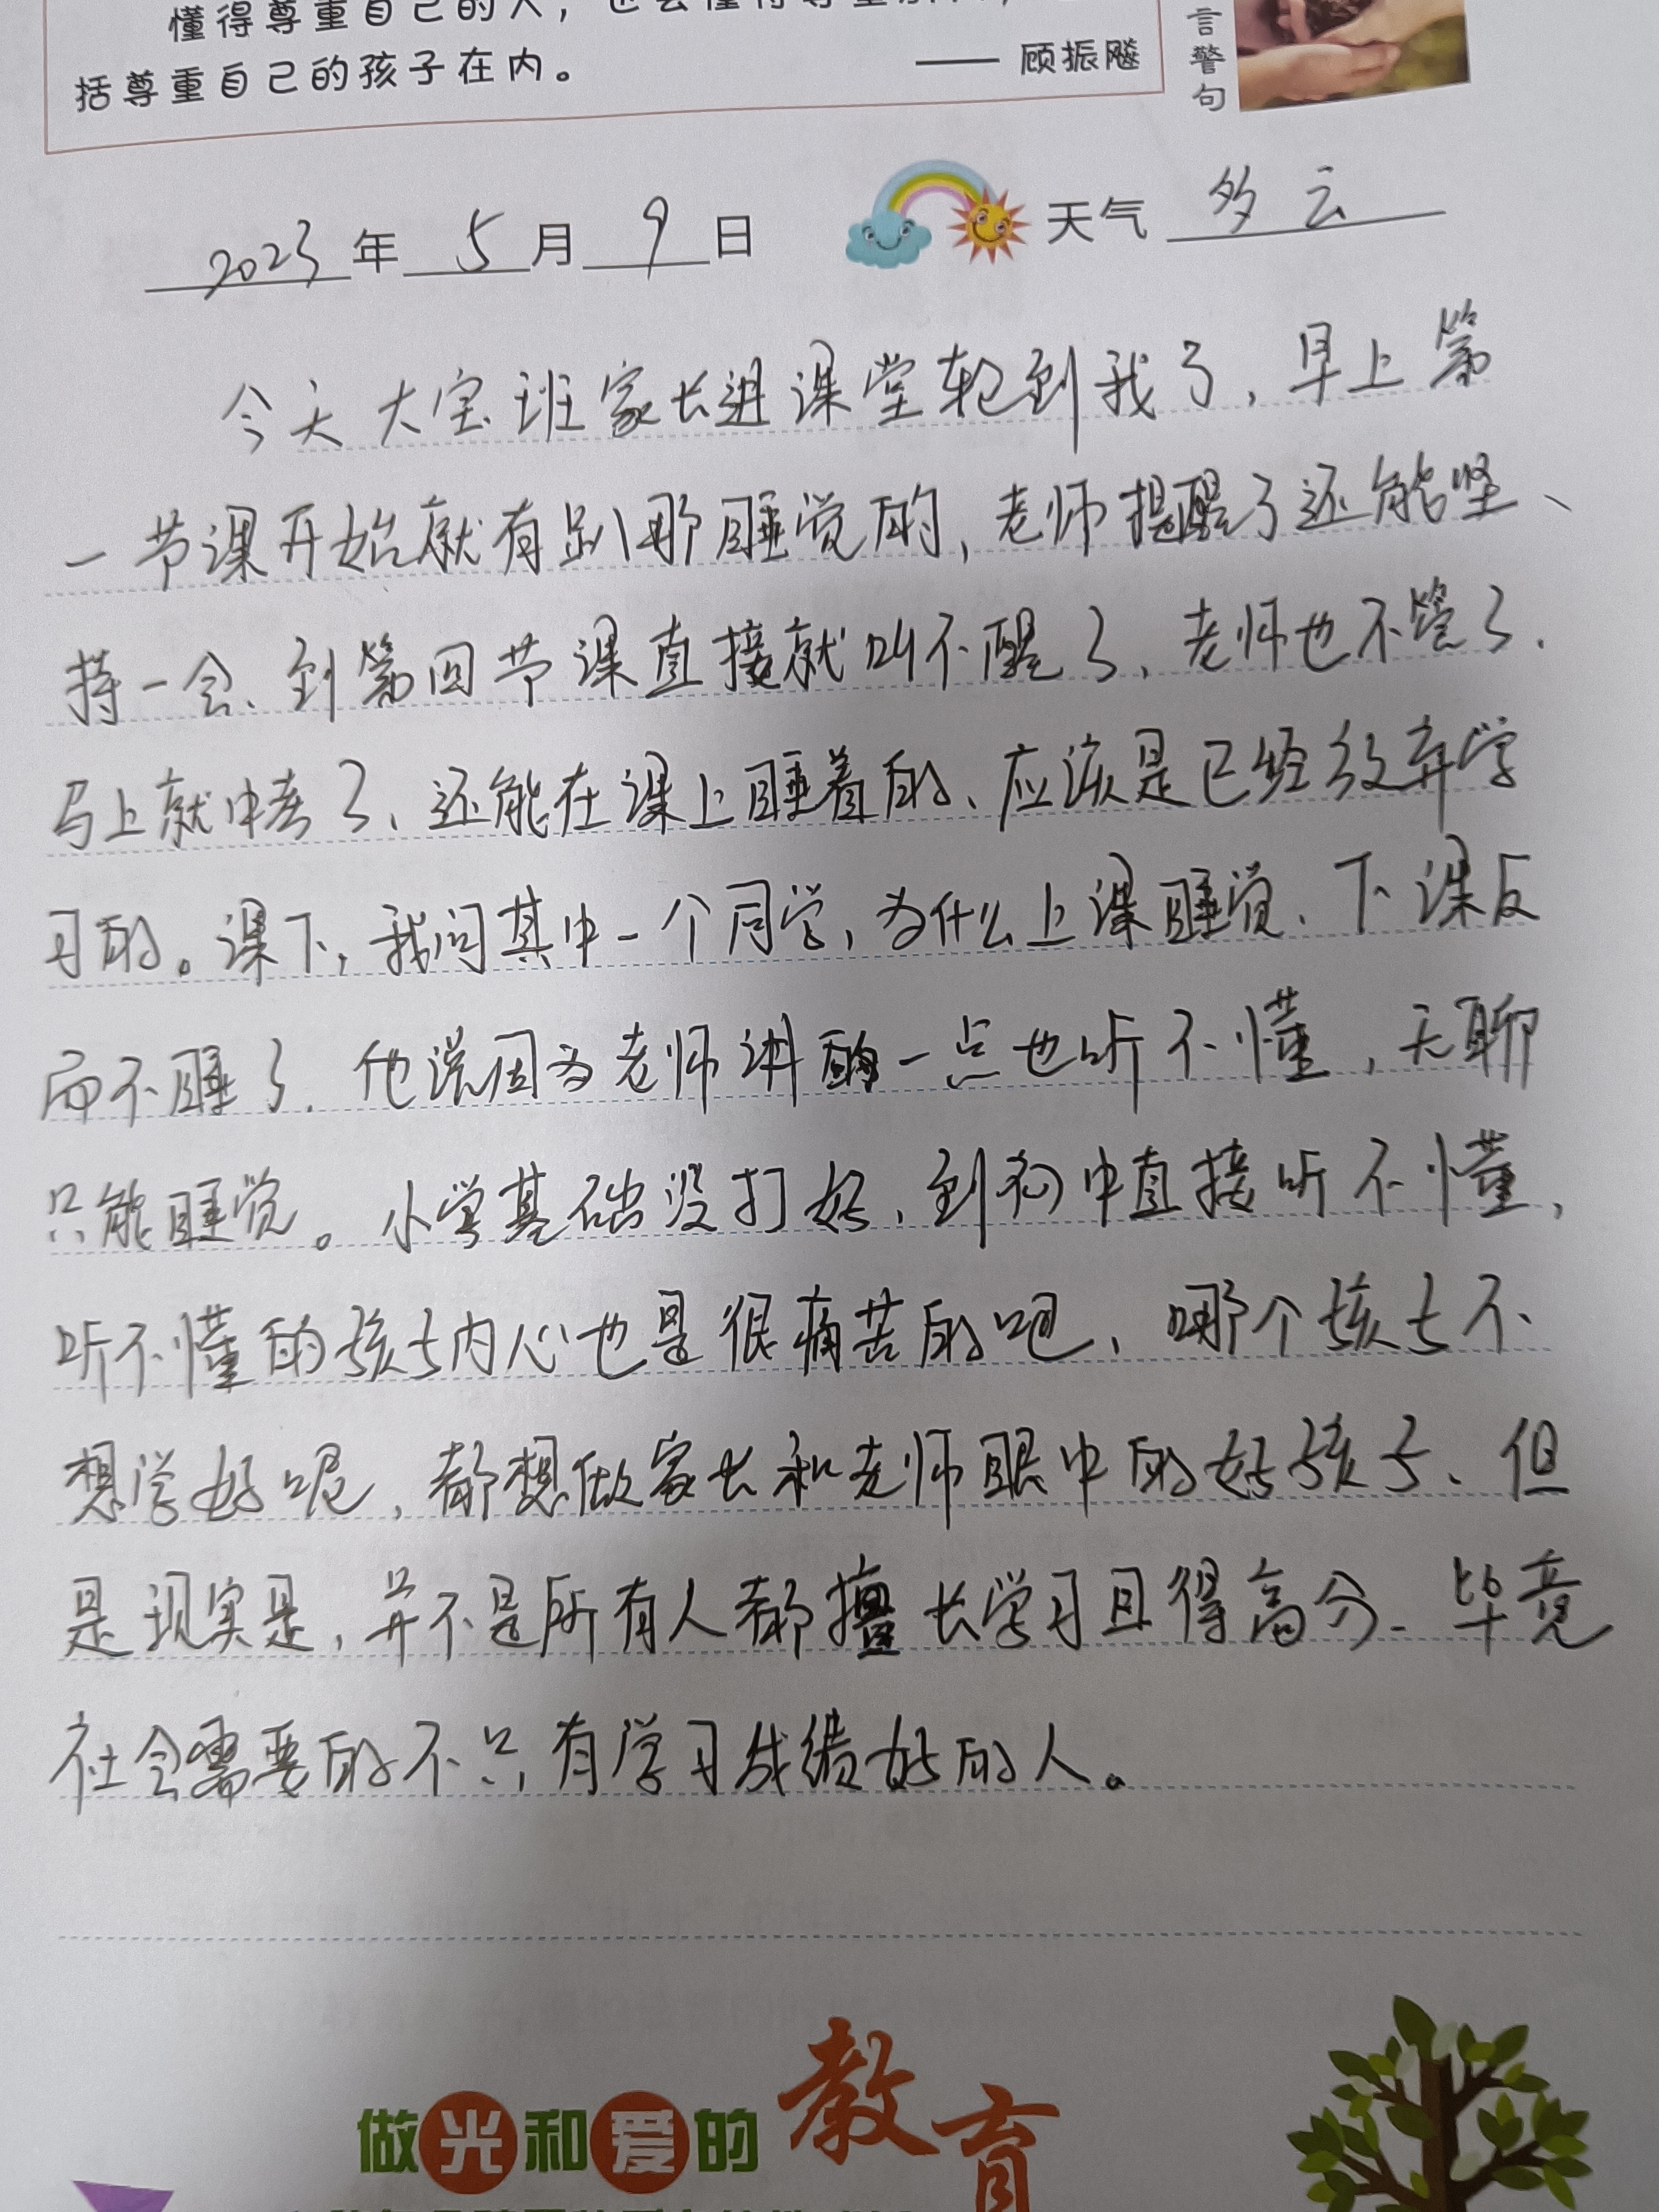 懂得尊重自己的人，也会懂得尊重别人，
括尊重自己的孩子在内。
—— 顾振飚
言警句
2023年 5月 9日 天气 多云
今天大宝班家长进课堂轮到我了，早上第
一节课开始就有趴那睡觉的，老师提醒了还能坚、
持一会、到第四节课直接就叫不醒了、老师也不管了.
马上就中考了、还能在课上睡着的、应该是已经放弃学
习的。课下，我问其中一个同学，为什么上课睡觉、下课反
而不睡了.他说因为老师讲的一点也听不懂，无聊
只能睡觉。小学基础没打好、到初中直接听不懂、
听不懂的孩子内心也是很痛苦的吧、哪个孩子不
想学好呢，都想做家长和老师眼中的好孩子、但
是现实是，并不是所有人都擅长学习且得高分.毕竟
社会需要的不只有学习成绩好的人。
做光和爱的教育